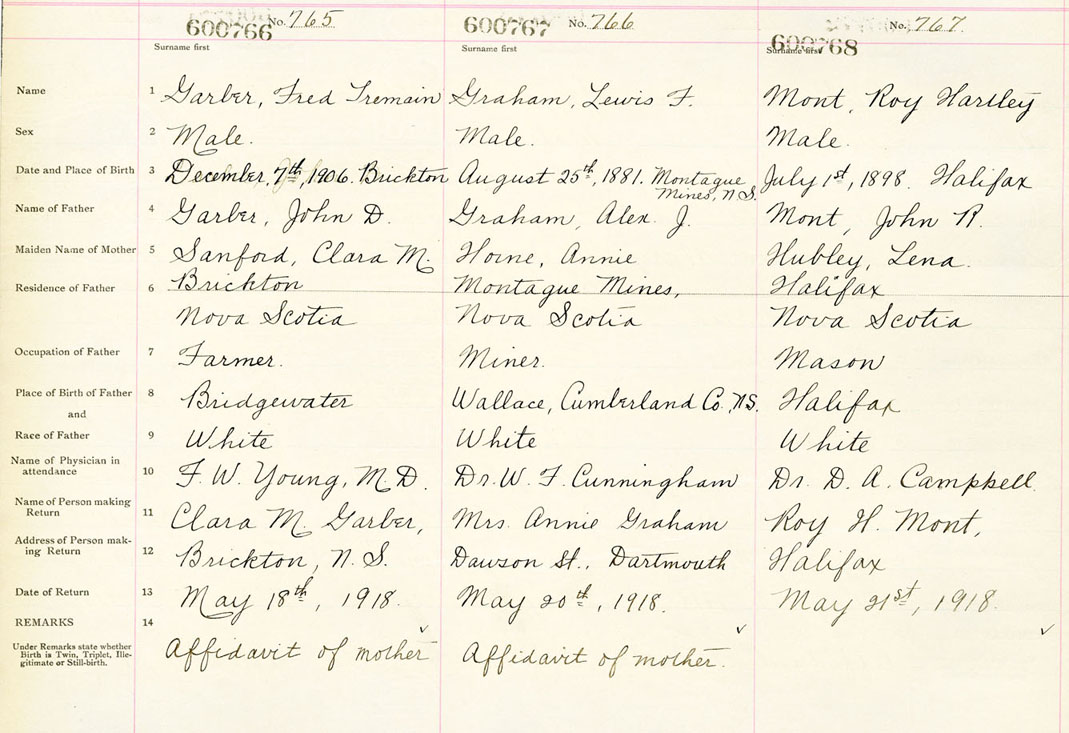 No. 765 No. 766 No. 767
600766 600767 600768
Surname first Surname first Surname first
Name 1 Garber, Fred Tremain Graham, Lewis F. Mont, Roy Hartley
Sex 2 Male. Male. Male.
Date and Place of Birth 3 December, 7th, 1906. Brickton August 25th, 1881. Montague Mines, N.S. July 1st, 1898. Halifax
Name of Father 4 Garber, John D. Graham, Alex. J. Mont, John R.
Maiden Name of Mother 5 Sanford, Clara M. Horne, Annie Hubley, Lena.
Residence of Father 6 Brickton Montague Mines, Halifax
Nova Scotia Nova Scotia Nova Scotia
Occupation of Father 7 Farmer. Miner. Mason
Place of Birth of Father 8 Bridgewater Wallace, Cumberland Co., N.S. Halifax
and
Race of Father 9 White White White
Name of Physician in
attendance 10 F. W. Young, M.D. Dr. W. F. Cunningham Dr. D. A. Campbell
Name of Person making
Return 11 Clara M. Garber, Mrs. Annie Graham Roy H. Mont,
Address of Person mak-
ing Return 12 Brickton, N.S. Dawson St., Dartmouth Halifax
Date of Return 13 May 18th, 1918. May 20th, 1918. May 21st, 1918.
REMARKS 14
Under Remarks state whether
Birth is Twin, Triplet, Ille-
gitimate or Still-birth.
Affidavit of mother Affidavit of mother.